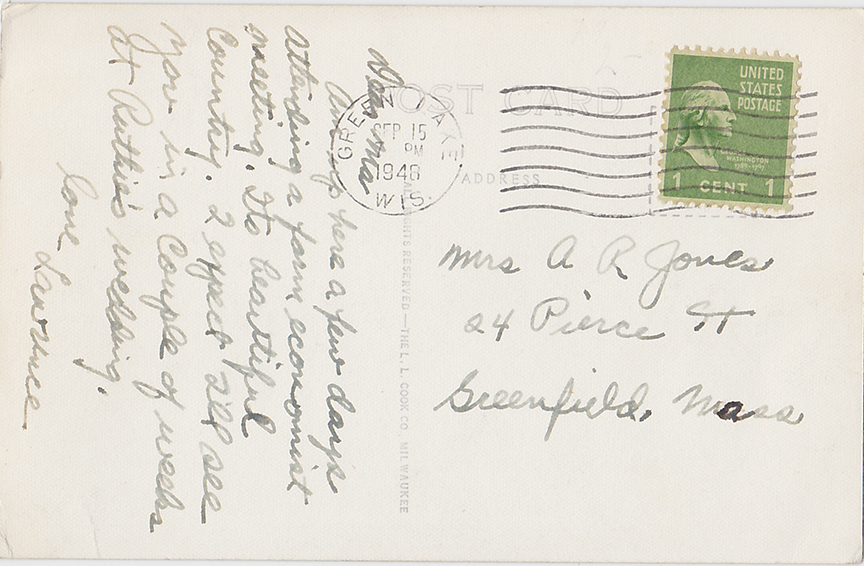 POST CARD
ADDRESS
GREEN LAKE
SEP 15
PM
1946
WIS.
UNITED
STATES
POSTAGE
GEORGE
WASHINGTON
1789-1797
1 CENT 1
Dear Ma
Am up here a few days
attending a farm economist
meeting. Its beautiful
country. I expect I'll see
you in a couple of weeks
at Ruthie's wedding.
love Lawrence
ALL RIGHTS RESERVED—THE L. L. COOK CO. MILWAUKEE
Mrs A R Jones
24 Pierce St
Greenfield, Mass